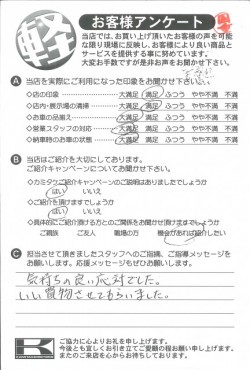 軽
お客様アンケート
当店では、お買い上げ頂いたお客様の声を可能
な限り現場に反映し、お客様により良い商品と
サービスを提供する事を心がけています。
大変お手数ですが是非お声をお聞かせ下さい。
A 当店を実際にご利用になった印象をお聞かせ下さい。
◇店の印象 大満足 満足 ふつう やや不満 不満
◇店内・展示場の清掃 大満足 満足 ふつう やや不満 不満
◇お車の品揃え 大満足 満足 ふつう やや不満 不満
◇営業スタッフの対応 大満足 満足 ふつう やや不満 不満
◇納車時のお車の状態 大満足 満足 ふつう やや不満 不満
B 当店はご紹介を大切にしております。
ご紹介キャンペーンについてお聞かせ下さい。
◇カミタケご紹介キャンペーンのご説明はありましたでしょうか
はい いいえ
◇ご紹介頂けますでしょうか
はい いいえ
◇具体的にご紹介頂ける方とのご関係をお聞かせ頂けますでしょうか
ご親族 ご友人 職場の方 機会があれば紹介したい
C 担当させて頂きましたスタッフへのご指摘、ご指導メッセージを
お願いします。応援メッセージもぜひお願いします。
気持ちの良い応対でした。
いい買物させてもらいました。
K
ご協力に心よりお礼を申し上げます。
今後とも宜しくお引き立てご愛顧の程お願い申し上げます。
またのご来店を心からお待ちしております。